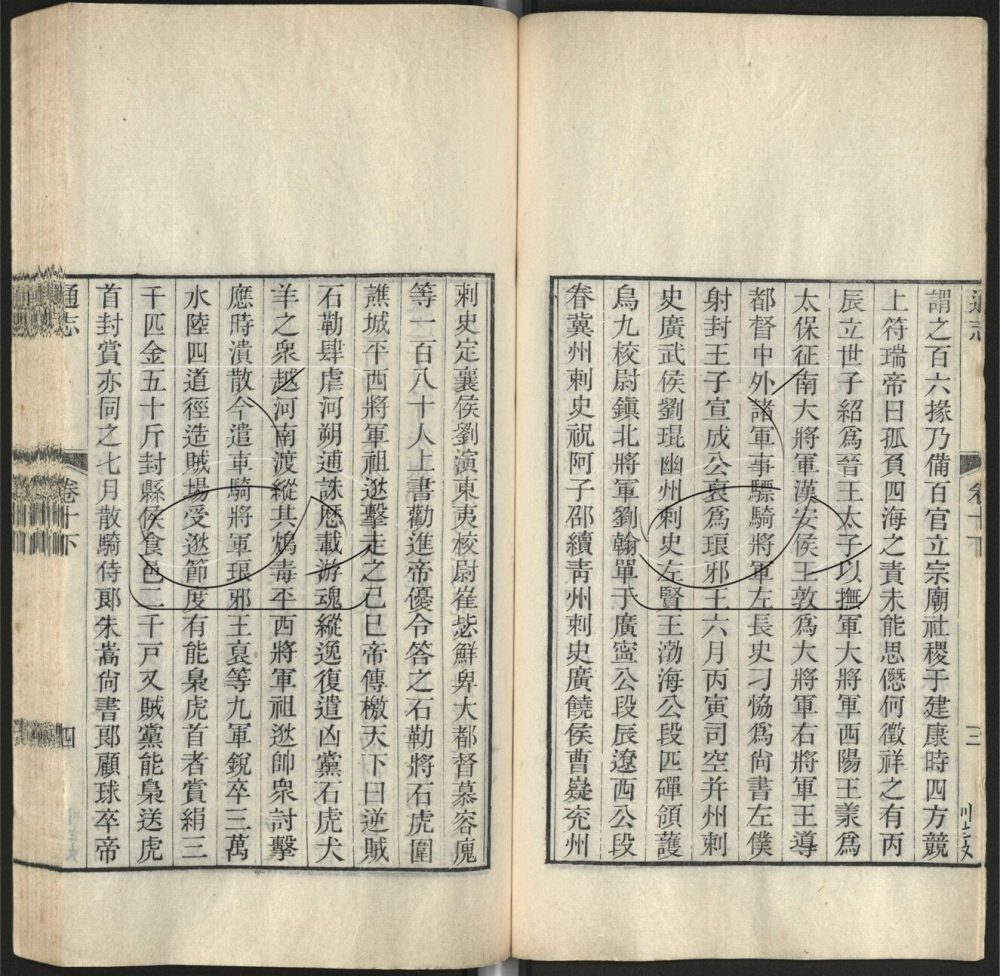 通志
卷十下
三
謂之百六掾乃備百官立宗廟社稷于建康時四方競
上符瑞帝曰孤負四海之責未能思愆何徵祥之有丙
辰立世子紹爲晉王太子以撫軍大將軍西陽王羕爲
太保征南大將軍漢安侯王敦爲大將軍右將軍王導
都督中外諸軍事驃騎將軍左長史刁恊爲尚書左僕
射封王子宣成公裒爲琅邪王六月丙寅司空并州刺
史廣武侯劉琨幽州刺史左賢王渤海公段匹磾領護
烏九校尉鎭北將軍劉翰單于廣寍公段辰遼西公段
眷冀州刺史祝阿子邵續靑州刺史廣饒侯曹嶷兖州
刺史定襄侯劉演東夷校尉崔毖鮮𤰞大都督慕容廆
等一百八十人上書勸進帝優令答之石勒將石虎圍
譙城平西將軍祖逖擊走之己巳帝傳檄天下曰逆賊
石勒肆虐河朔逋誅歴載游魂縱逸復遣凶黨石虎犬
羊之衆越河南渡縱其鴆毒平西將軍祖逖帥衆討擊
應時潰散今遣車騎將軍琅邪王裒等九軍銳卒三萬
水陸四道徑造賊場受逖節度有能梟虎首者賞絹三
千匹金五十斤封縣侯食邑二千戸又賊黨能梟送虎
首封賞亦同之七月散騎侍郞朱嵩尚書郞顧球卒帝
通志
卷十下
四